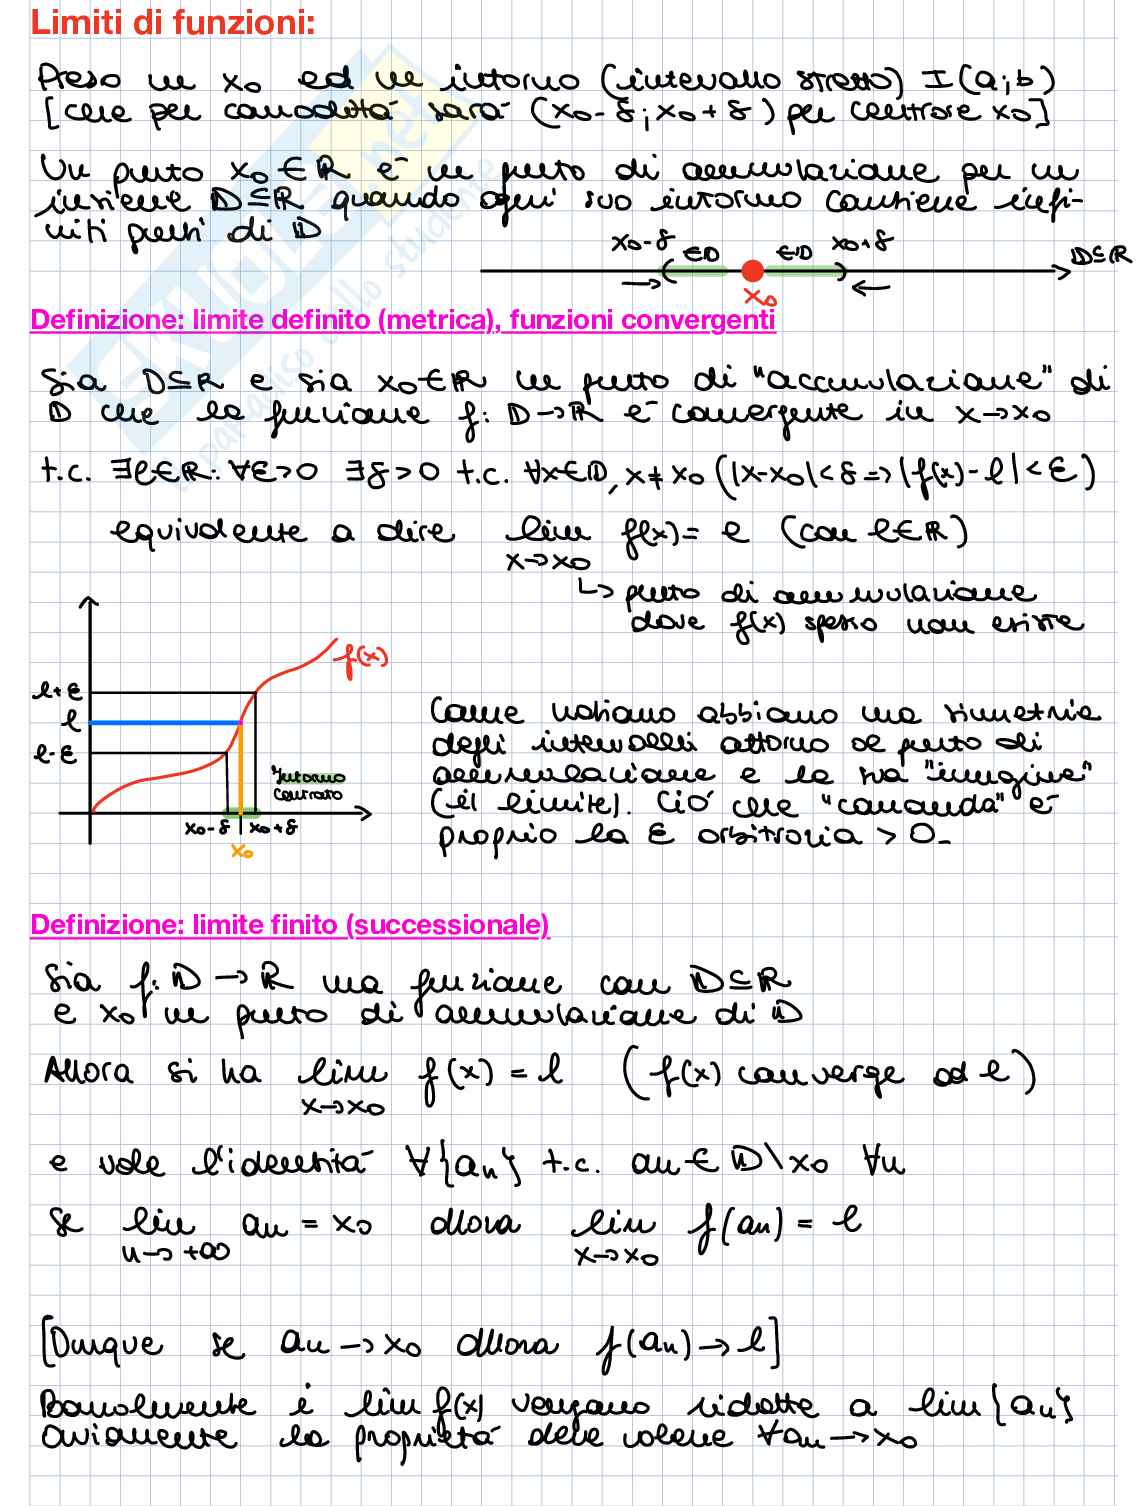 Limiti di funzioni:
Preso un x₀ ed un intorno (intervallo stretto) I(a;b)
[che per comodità sarà (x₀-δ; x₀+δ) per centrare x₀]
Un punto x₀∈ℝ è un punto di accumulazione per un
insieme D⊆ℝ quando ogni suo intorno contiene infi-
niti punti di D
x₀-δ ∈D ∈D x₀+δ D⊆ℝ
x₀
Definizione: limite definito (metrica), funzioni convergenti
Sia D⊆ℝ e sia x₀∈ℝ un punto di "accumulazione" di
D che la funzione f: D→ℝ è convergente in x→x₀
t.c. ∃l∈ℝ: ∀ε>0 ∃δ>0 t.c. ∀x∈D, x≠x₀ (|x-x₀|<δ => |f(x)-l|<ε)
equivalente a dire lim f(x)= l (con l∈ℝ)
x→x₀
↳ punto di accumulazione
dove f(x) spesso non esiste
f(x)
l+ε
l
l-ε
Intorno
Centrato
x₀-δ x₀+δ
x₀
Come notiamo abbiamo una simmetria
degli intervalli attorno al punto di
accumulazione e la sua "immagine"
(il limite). Ciò che "comanda" è
proprio la ε arbitraria > 0.
Definizione: limite finito (successionale)
Sia f: D → ℝ una funzione con D⊆ℝ
e x₀ un punto di accumulazione di D
Allora si ha lim f(x) = l (f(x) converge ad l)
x→x₀
e vale l'identità ∀{aₙ} t.c. aₙ∈D\x₀ ∀n
se lim aₙ = x₀ allora lim f(aₙ) = l
n→+∞ x→x₀
[Dunque se aₙ→x₀ allora f(aₙ)→l]
Banalmente i lim f(x) vengono ridotte a lim{aₙ}
ovviamente la proprietà deve valere ∀aₙ→x₀
SKUOLA.net
paradiso dello studente